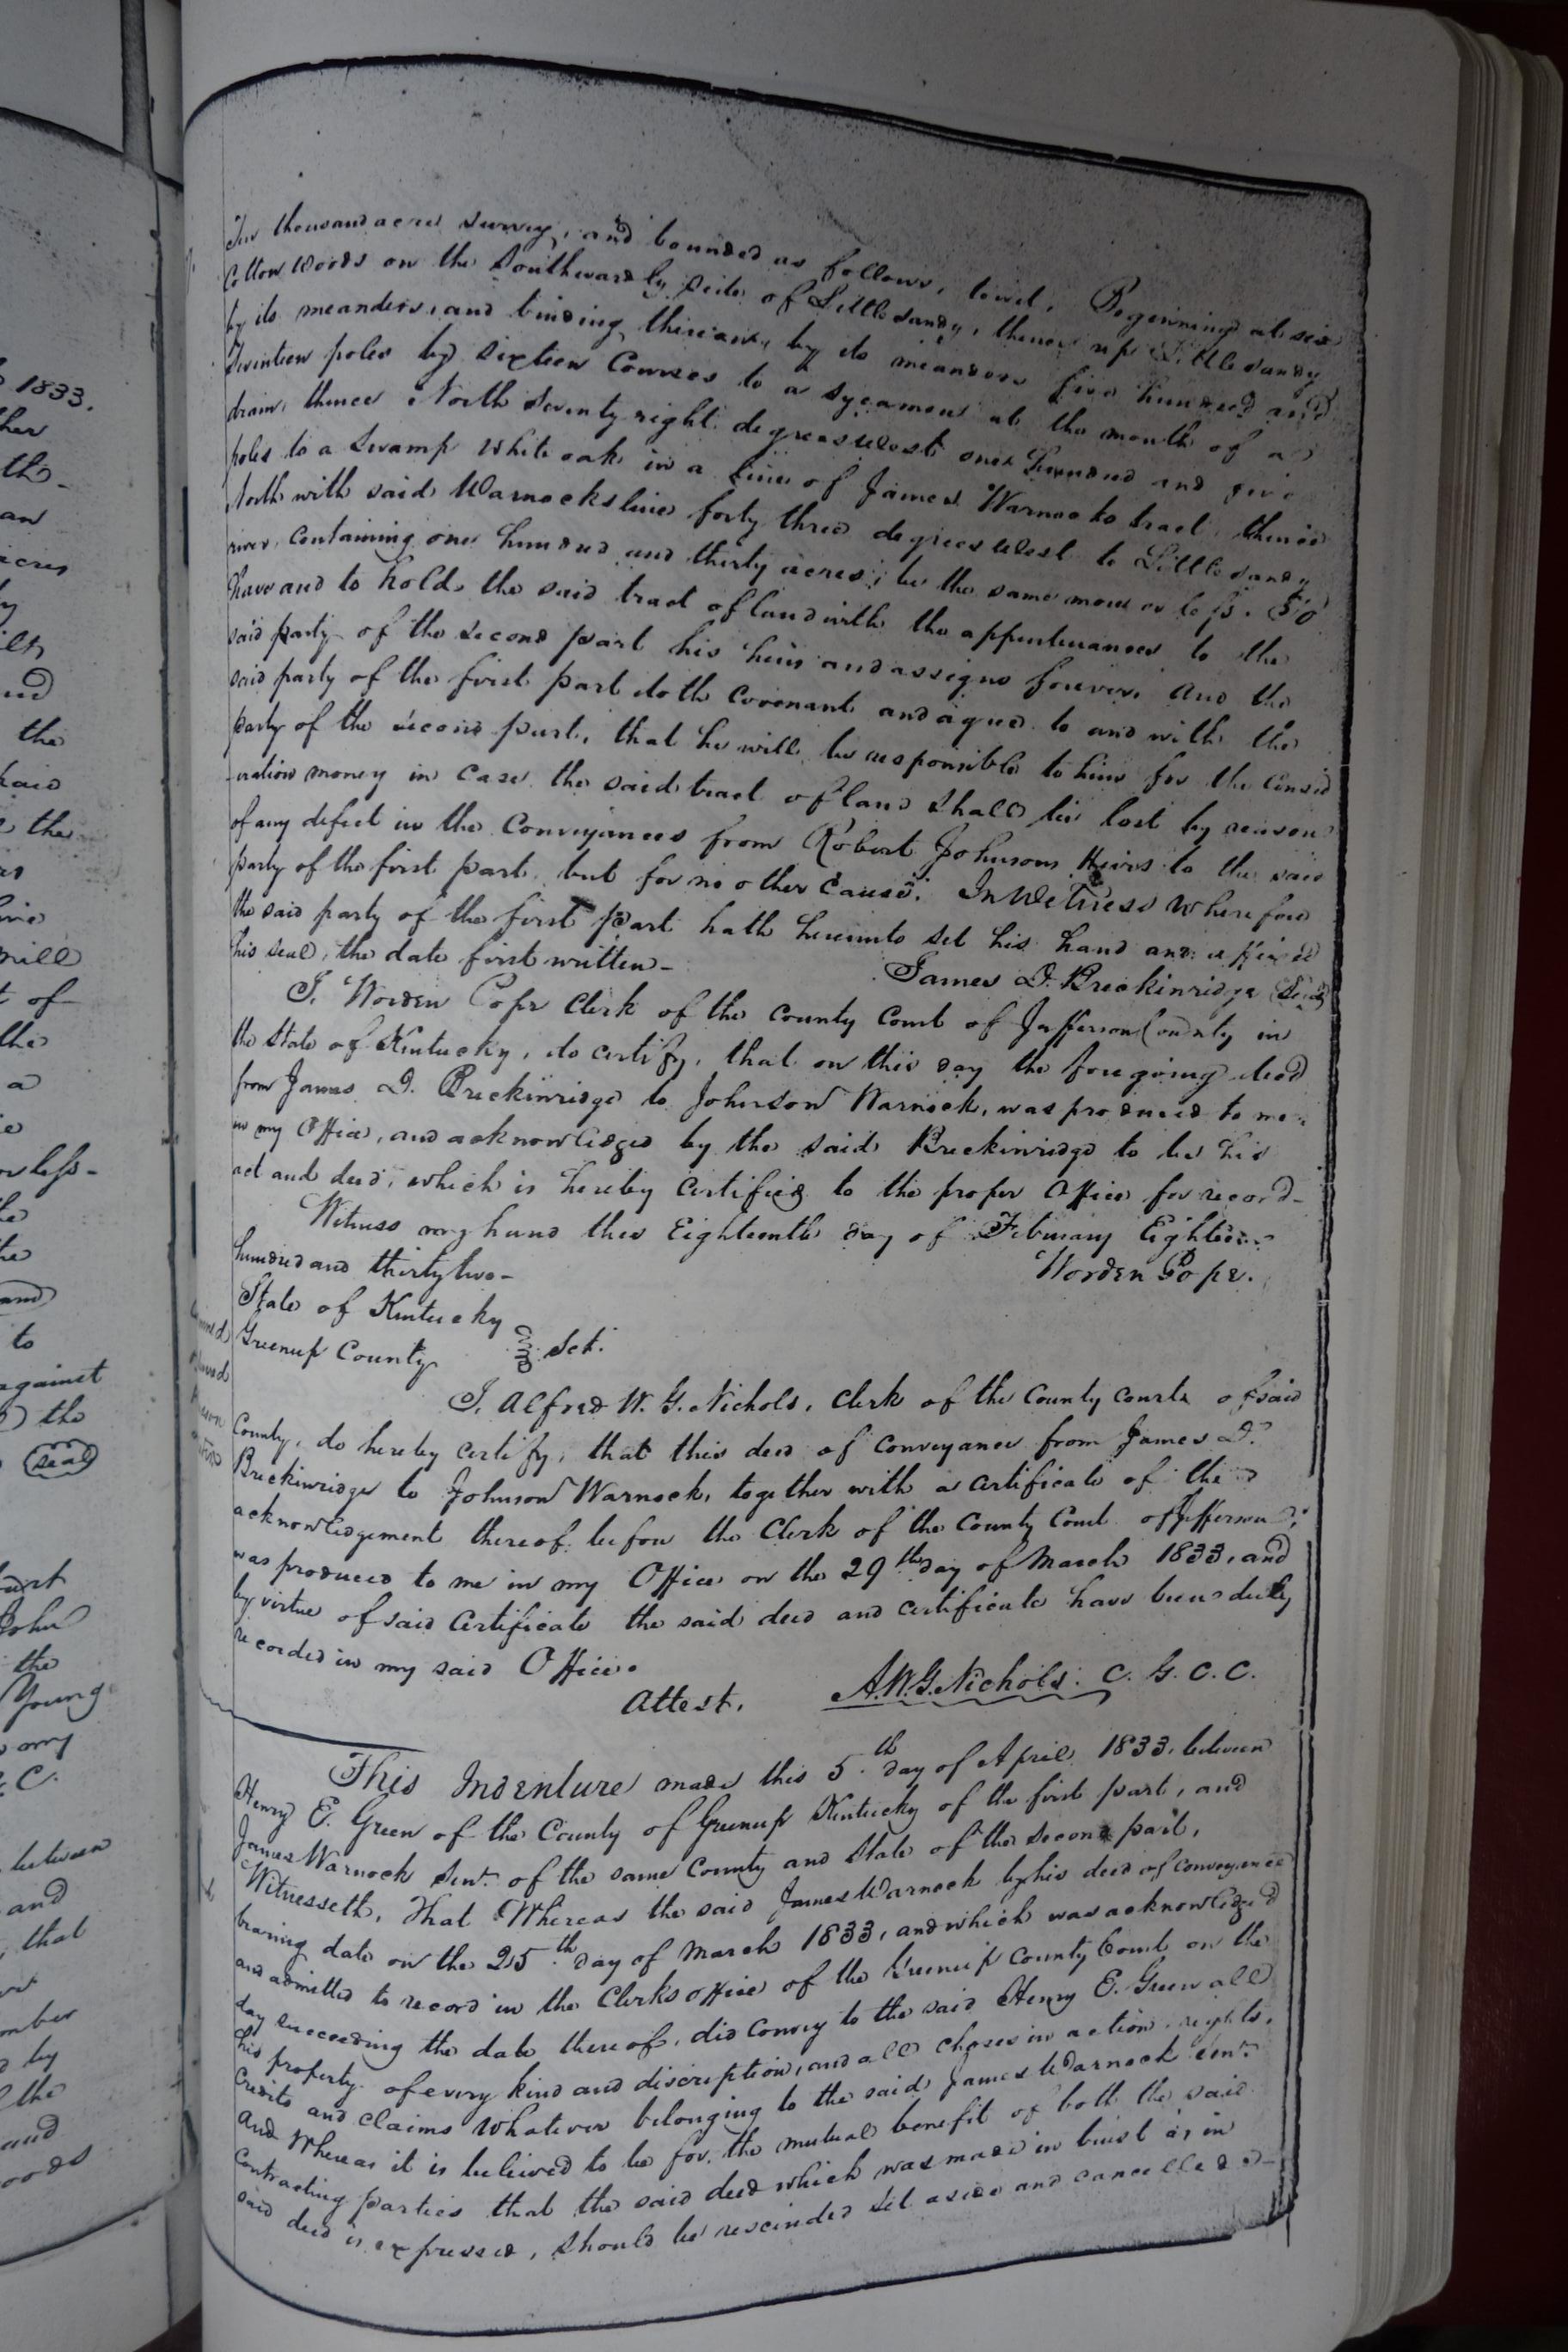 1833.
her
the
an
acres
the
said
the
mill
of
the
a
or less-
the
and
to
against
the
seal
part
John
the
Young
my
C.
between
and
that
by
of the
and
woods
Ten thousand acres survey, and bounded as follows, towit, Beginning at six
Cotton woods on the Southwardly side of Little sandy, thence up Little sandy
by its meanders, and binding thereon, by its meanders five hundred and
Seventeen poles by sixteen Courses to a sycamore at the mouth of a
drain, thence North Seventy eight degrees West one hundred and five
poles to a Swamp white oak in a line of James Warnocks tract, thence
North with said Warnocks line forty three degrees West to Little sandy
river, Containing one hundred and thirty acres, be the same more or less. To
have and to hold the said tract of land with the appurtenances to the
said party of the second part his heirs and assigns forever. And the
said party of the first part doth Covenant and agree to and with the
party of the second part, that he will be responsible to him for the Consid
-eration money in Case the said tract of land shall be lost by reason
of any defect in the Conveyances from Robert Johnsons Heirs to the said
party of the first part, but for no other Cause. In Witness Wherefore
the said party of the first part hath hereunto set his hand and affixed
his seal, the date first written-
James D. Breckinridge Seal
I. Worden Pope Clerk of the County Court of Jefferson County in
the State of Kentucky, do certify, that on this day the foregoing deed
from James D. Breckinridge to Johnson Warnock, was produced to me
in my Office, and acknowledged by the said Breckinridge to be his
act and deed, which is hereby Certified to the proper Office for record-
Witness my hand this Eighteenth day of February Eighteen
hundred and thirty two-
Worden Pope.
State of Kentucky
Greenup County Sct.
I. Alfred W. G. Nichols, Clerk of the County Courts of said
County, do hereby certify, that this deed of Conveyance from James D.
Breckinridge to Johnson Warnock, together with a Certificate of the
acknowledgement thereof before the Clerk of the County Court of Jefferson,
was produced to me in my Office on the 29th day of March 1833, and
by virtue of said Certificate the said deed and certificate have been duly
recorded in my said Office.
Attest. A.W.G. Nichols. C. G. C. C.
This Indenture made this 5th day of April 1833, between
Henry E. Green of the County of Greenup Kentucky of the first part, and
James Warnock Senr. of the same County and State of the second part,
Witnesseth, That Whereas the said James Warnock by his deed of conveyance
bearing date on the 25th day of March 1833, and which was acknowledged
and admitted to record in the Clerks office of the Greenup County Court on the
day succeeding the date thereof, did Convey to the said Henry E. Green all
his property of every kind and discription, and all choses in action, rights,
Credits and claims whatever belonging to the said James Warnock Senr.
And Whereas it is believed to be for the mutual benefit of both the said
Contracting parties that the said deed which was made in trust as in
said deed is expressed, should be rescinded set aside and cancelled-